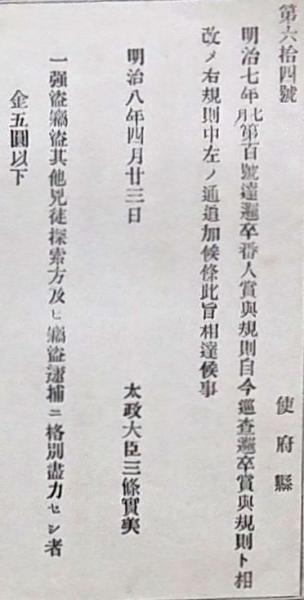 第六拾四號
使府縣
明治七年七月第百號達邏卒番人賞與規則自今巡查邏卒賞與規則ト相
改メ右規則中左ノ通追加候條此旨相達候事
明治八年四月廿三日
太政大臣三條實美
一强盜竊盜其他兇徒探索方及ヒ竊盜逮捕ニ格別盡力セシ者
金五圓以下